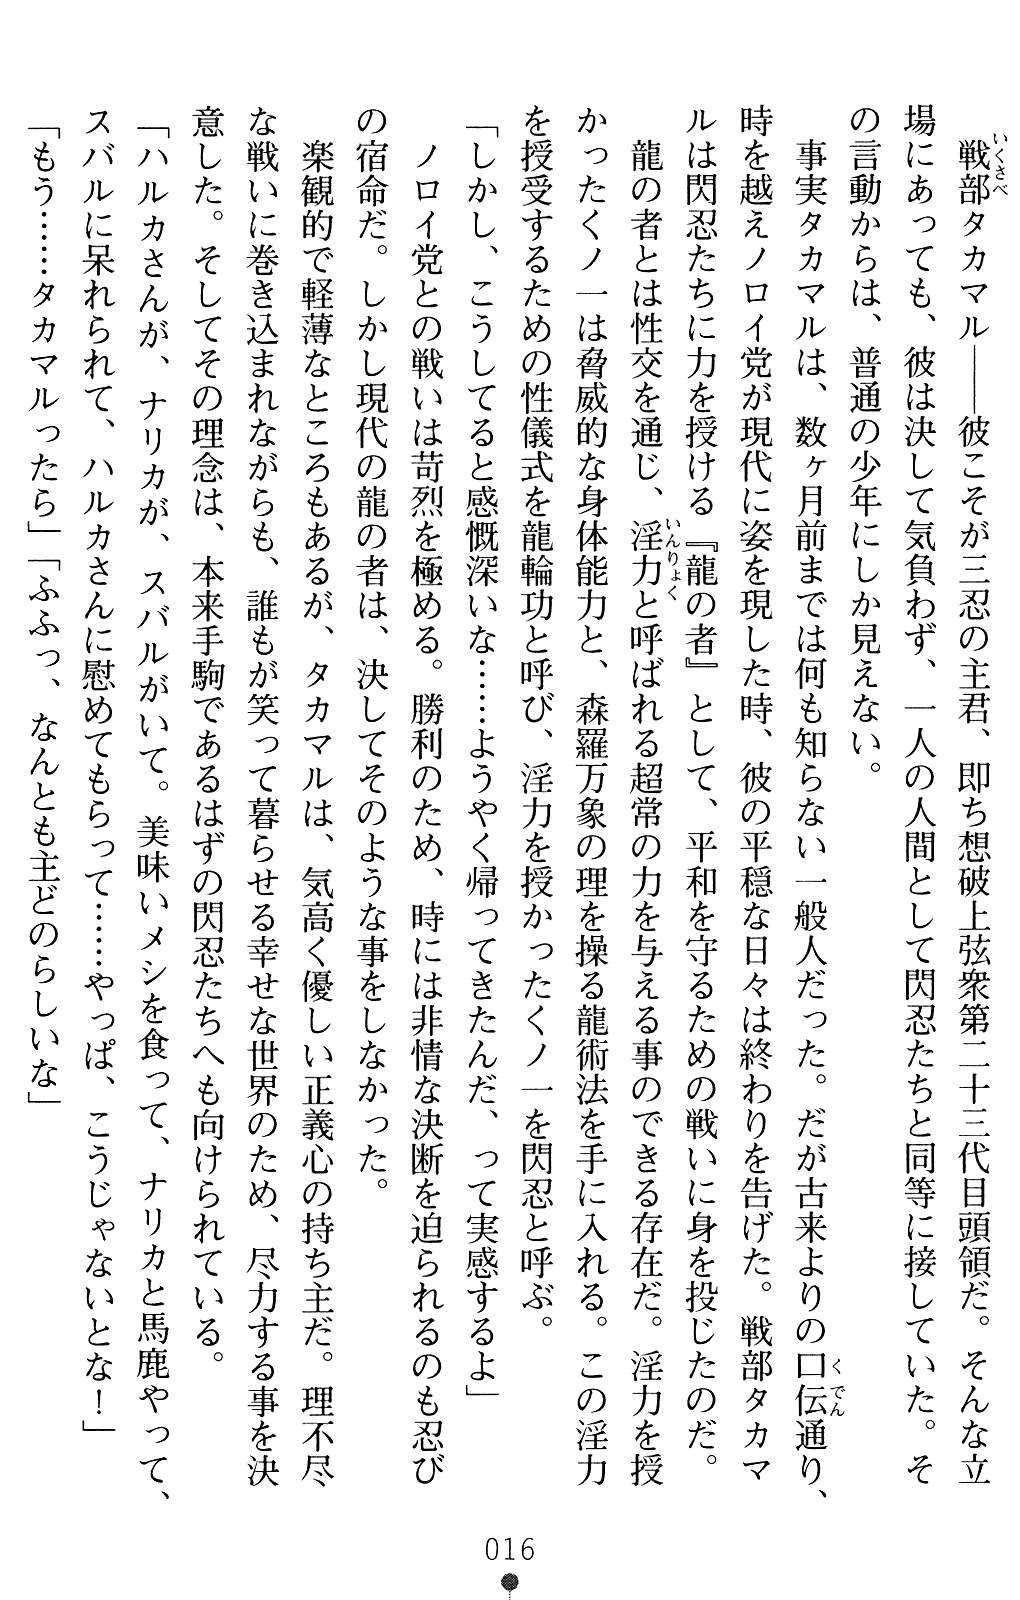 戦部タカマル――彼こそが三忍の主君、即ち想破上弦衆第二十三代目頭領だ。そんな立
場にあっても、彼は決して気負わず、一人の人間として閃忍たちと同等に接していた。そ
の言動からは、普通の少年にしか見えない。
事実タカマルは、数ヶ月前までは何も知らない一般人だった。だが古来よりの口伝通り、
時を越えノロイ党が現代に姿を現した時、彼の平穏な日々は終わりを告げた。戦部タカマ
ルは閃忍たちに力を授ける『龍の者』として、平和を守るための戦いに身を投じたのだ。
龍の者とは性交を通じ、淫力と呼ばれる超常の力を与える事のできる存在だ。淫力を授
かったくノ一は脅威的な身体能力と、森羅万象の理を操る龍術法を手に入れる。この淫力
を授受するための性儀式を龍輪功と呼び、淫力を授かったくノ一を閃忍と呼ぶ。
「しかし、こうしてると感慨深いな……ようやく帰ってきたんだ、って実感するよ」
ノロイ党との戦いは苛烈を極める。勝利のため、時には非情な決断を迫られるのも忍び
の宿命だ。しかし現代の龍の者は、決してそのような事をしなかった。
楽観的で軽薄なところもあるが、タカマルは、気高く優しい正義心の持ち主だ。理不尽
な戦いに巻き込まれながらも、誰もが笑って暮らせる幸せな世界のため、尽力する事を決
意した。そしてその理念は、本来手駒であるはずの閃忍たちへも向けられている。
「ハルカさんが、ナリカが、スバルがいて。美味いメシを食って、ナリカと馬鹿やって、
スバルに呆れられて、ハルカさんに慰めてもらって……やっぱ、こうじゃないとな！」
「もう……タカマルったら」「ふふっ、なんとも主どのらしいな」
いくさべ
くでん
いんりょく
016